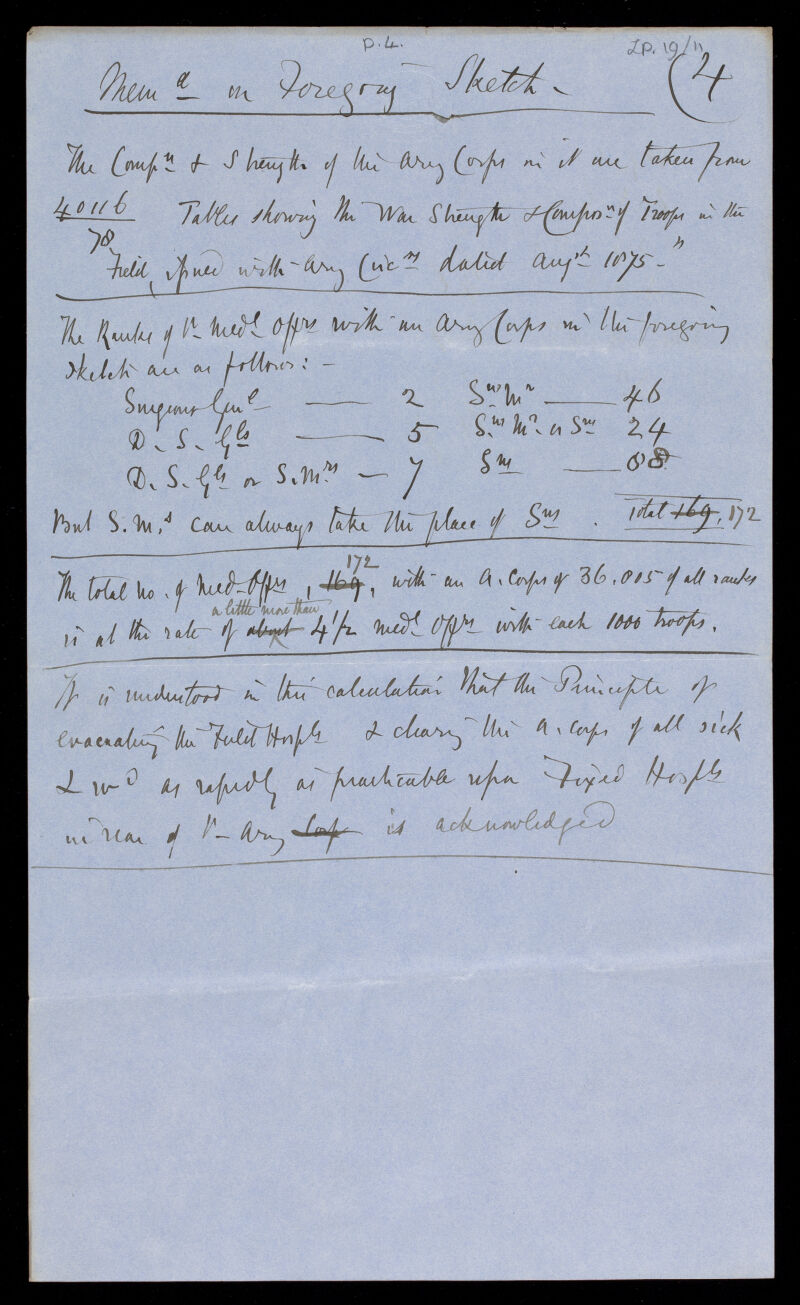 p. 4.
LP. 19/11
Mem.d on Foregoing Sketch - (4
The Comp.n & Strength of the Army Corps in it are taken from
40116/78 Tables showing the War Strength & Compos.n of Troops in the
Field, issued with Army Circ.rs dated Aug.st 1875 - "
The Ranks of the Med.l Off.rs with an Army Corps in the foregoing
sketch are as follows: -
Surgeons Gen.l — 2 S.ns M.r — 46
D. S. G.ls — 5 S.ns M.r or S.ns 24
D. S. G.ls or S. M.rs — 7 S.ns — 88
But S. M.s can always take the place of S.ns. Total 169, 172
172
The total no. of Med. Off.rs, 169, with an A. Corps of 36,005 of all ranks
a little more than
is at the rate of about 4 1/2 Med.l Off.rs with each 1000 troops.
It is understood in this calculation that the Principle of
evacuating the Field Hosp.ls & clearing the A. Corps of all sick
& w.d as rapidly as practicable upon Fixed Hosp.ls
in rear of the Army Corp is acknowledged